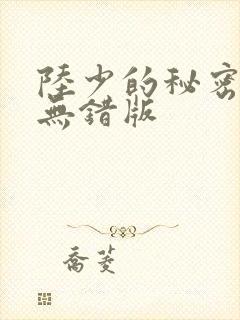 陸少的秘密
無錯版
喬菱